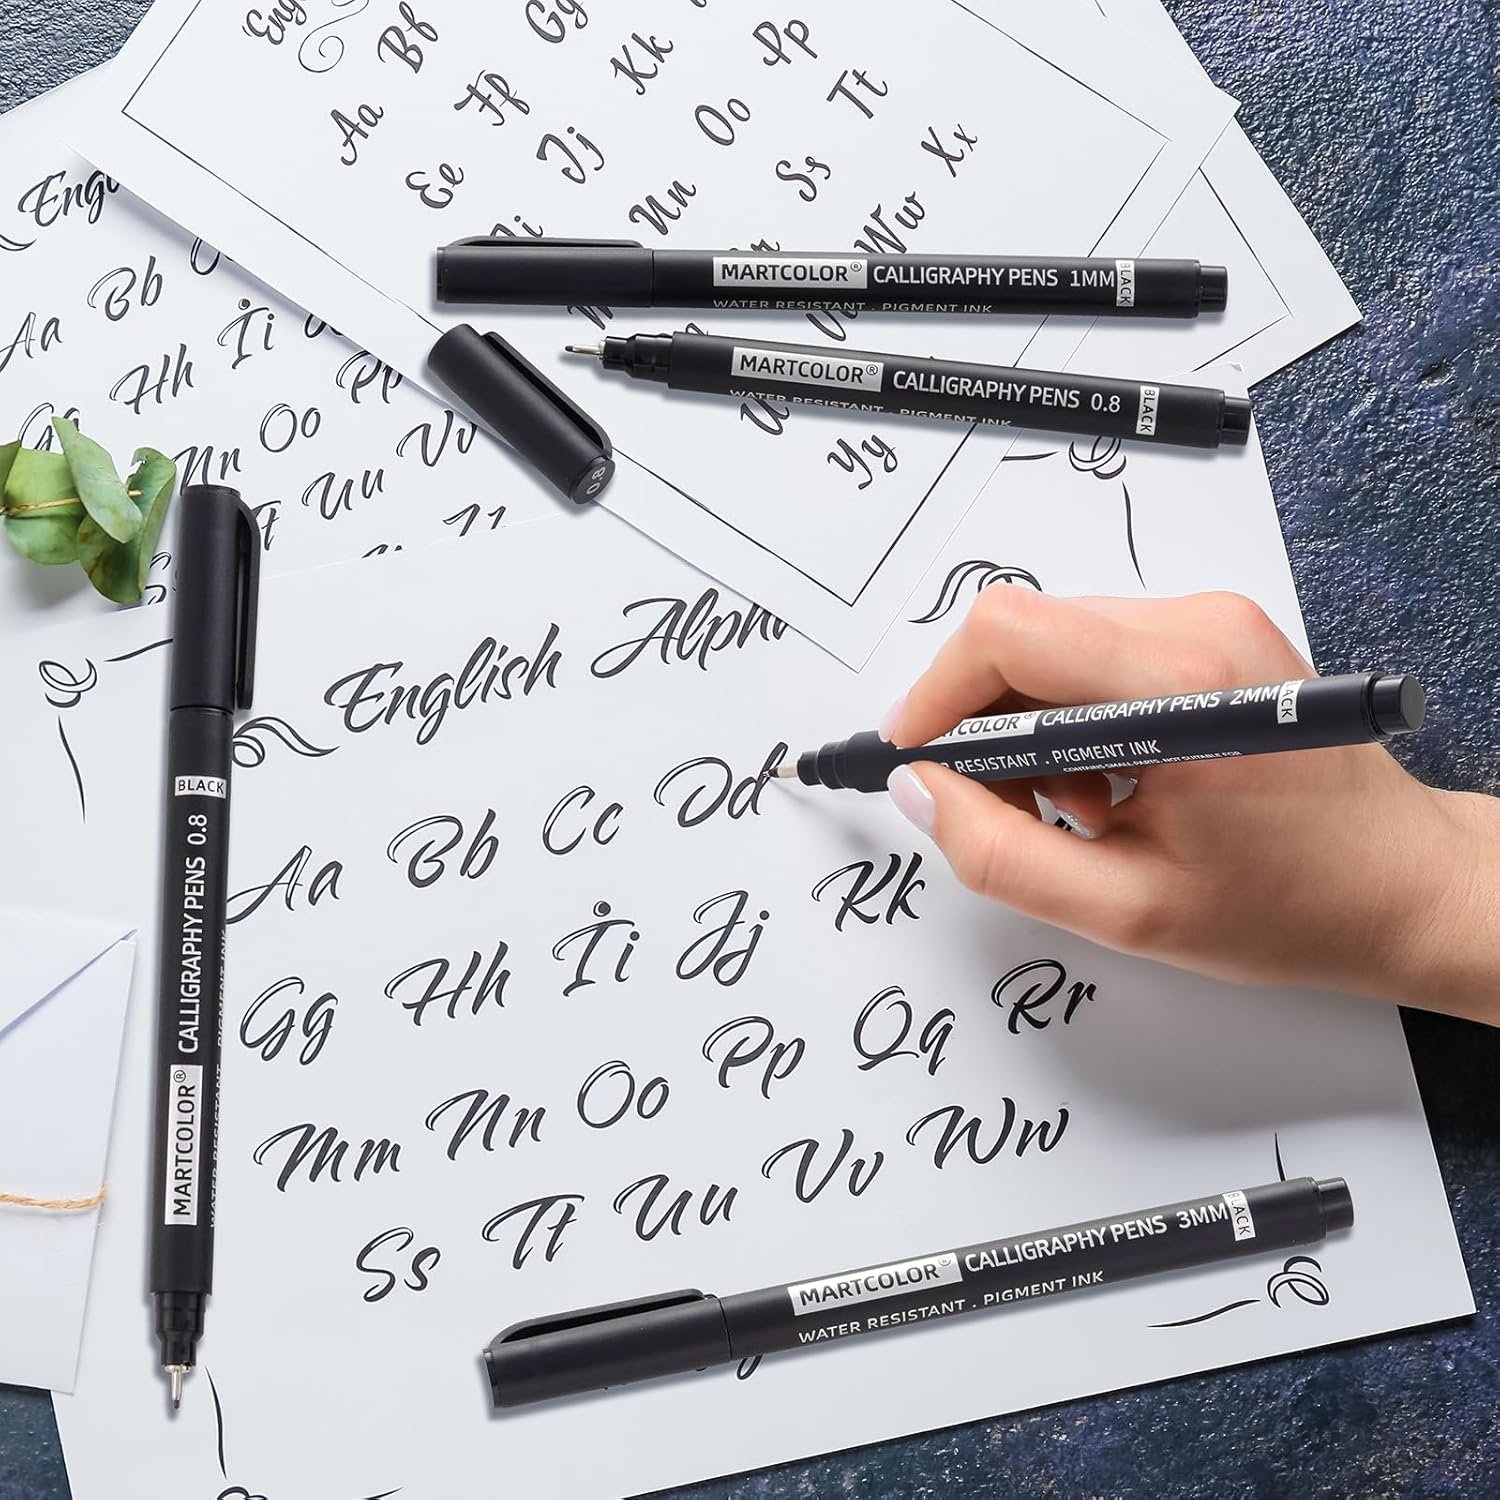 Eng
Bb
Gg
Kk
Pp
Aa
Ff
Jj
Oo
Tt
Ee
Nn
Ss
Xx
Ww
Yy
Eng
Aa Bb
Hh Ii
Oo Pp
Uu Vv
MARTCOLOR® CALLIGRAPHY PENS 1MM BLACK
WATER RESISTANT . PIGMENT INK
MARTCOLOR® CALLIGRAPHY PENS 0.8 BLACK
WATER RESISTANT . PIGMENT INK
0.8
English Alph
Aa Bb Cc Dd
Gg Hh Ii Jj Kk
Mm Nn Oo Pp Qq Rr
Ss Tt Uu Vv Ww
COLOR® CALLIGRAPHY PENS 2MM
RESISTANT . PIGMENT INK
CONTAINS SMALL PARTS. NOT SUITABLE FOR
MARTCOLOR® CALLIGRAPHY PENS 0.8 BLACK
WATER RESISTANT . PIGMENT INK
MARTCOLOR® CALLIGRAPHY PENS 3MM BLACK
WATER RESISTANT . PIGMENT INK